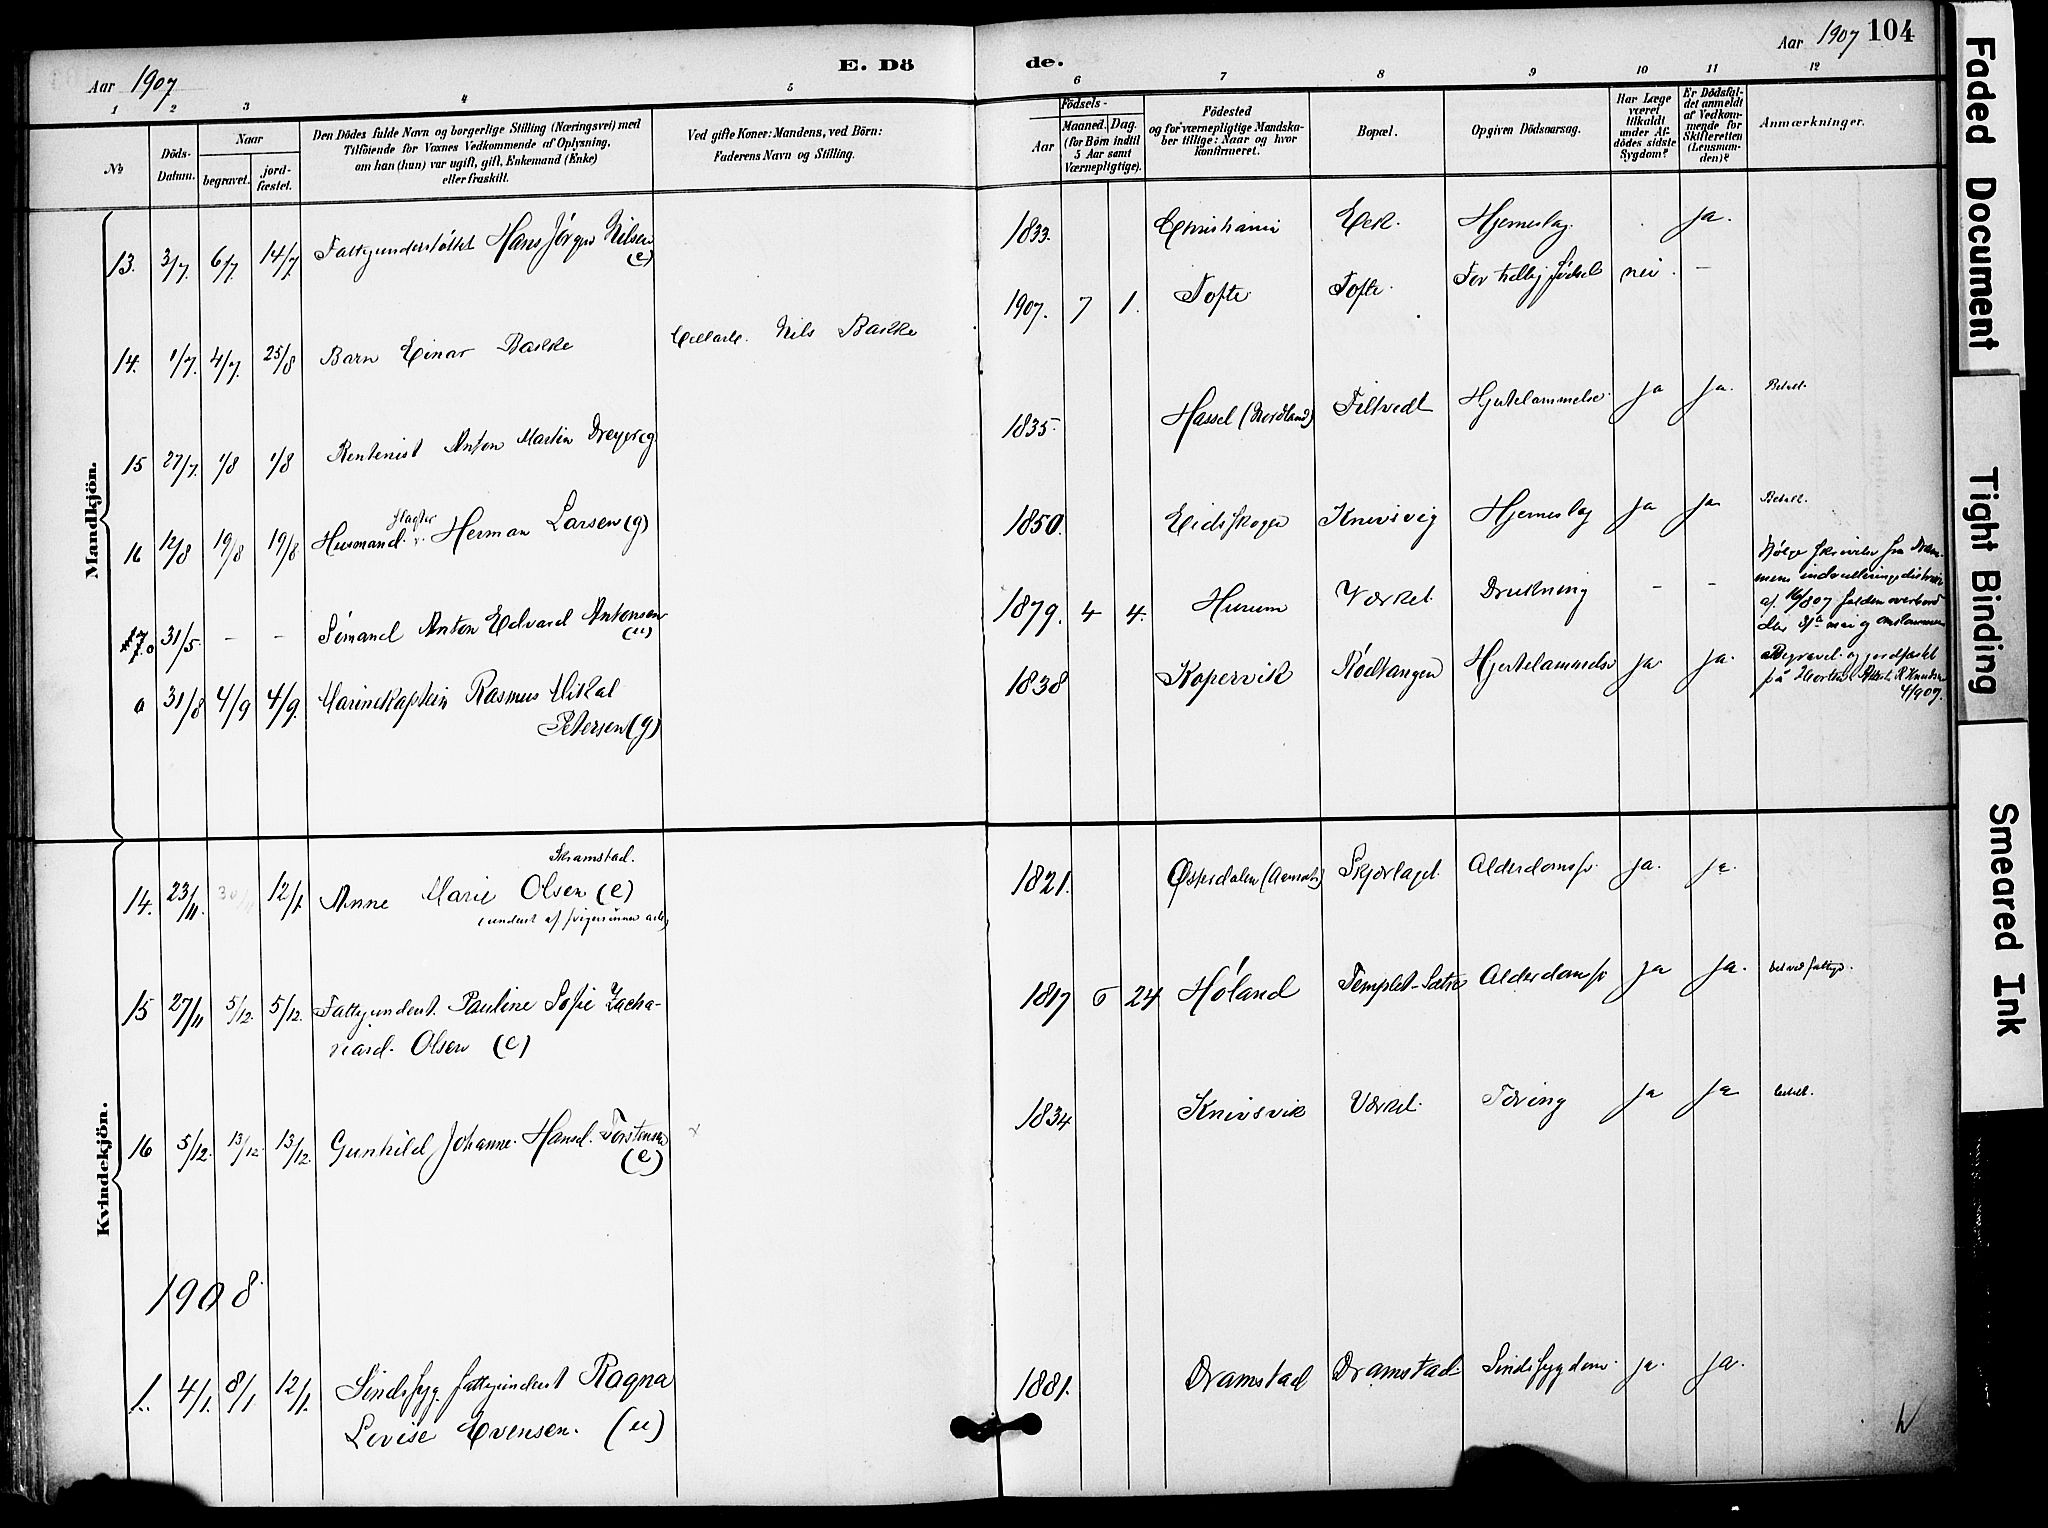 Aar 1907
E. Dö
de.
Aar 1907 104
1 2 3 4 5 6 7 8 9 10 11 12
No
Döds-
Datum.
Naar
begravet.
jord-
fæstet.
Den Dödes fulde Navn og borgerlige Stilling (Næringsvei) med
Tilföiende for Voxnes Vedkommende af Oplysning,
om han (hun) var ugift, gift, Enkemand (Enke)
eller fraskilt.
Ved gifte Koner: Mandens, ved Börn:
Faderens Navn og Stilling.
Födsels-
Aar
Maaned. Dag.
(for Börn indtil
5 Aar samt
Værnepligtige).
Födested
og for værnepligtige Mandska-
ber tillige: Naar og hvor
konfirmeret.
Bopæl.
Opgiven Dödsaarsag.
Har Læge
været
tilkaldt
under Af-
dödes sidste
Sygdom?
Er Dödsfal-
det anmeldt
af Vedkom-
mende for
Skifteretten
(Lensman-
den)?
Anmærkninger.
Mandkjön.
13. 3/7. 6/7. 14/7 Fattigunderstøttet Hans Jørgen Nilsen (e) 1833. Christiania Eek. Hjerneslag. ja.
14. 1/7. 4/7. 25/8 Barn Einar Bakke Nils Bakke 1907. 7 1. Tofte Tofte. For tidlig fødsel nei. –
15 27/7. 1/8 1/8 Rentenist Anton Martin Dreyer (g 1835. Hassel (Nordland) Filtvedt Hjertelammelse. ja ja. Betalt.
16 12/8 19/8 19/8 Husmand Herman Larsen (g) 1850. Eidskoger Knivsvig Hjerneslag ja ja Betalt.
17. 0 31/5. – – Sømand Anton Edvard Antonsen (u) 1879. 4 4. Hurum Værket. Drukning – –
Ifølge skrivelse fra Dram-
mens indrulleringsdistrikt
af 16/8 07 falden overbord
den 31te mai og omkommen
0 31/8 4/9 4/9. Marinekaptein Rasmus Mikal
Petersen (g) 1838 Kopervik Rødtangen Hjertelammelse ja. ja.
Begravet og jordfæstet
på Horten
4/9 07.
Kvindekjön.
Skramstad.
14. 23/11. 30/11 12/1 Anne Marie Olsen (e) 1821. Østerdalen Skjørlaget Alderdomssv. ja. ja.
15 27/11 5/12. 5/12. Fattigunderst. Pauline Sofie Zacha-
riasd. Olsen (e) 1817 6 24 Høland Templet-Sætre Alderdomssv ja ja.
16 5/12. 13/12. 13/12. Gunhild Johanne Hansd. Torstensen (e) 1834 Knivsvik Værket. Tæring ja ja betalt.
1908.
1. 4/1. 8/1 12/1. Sindssyg fattigunderst Ragna
Lovise Evensen. (u) 1881. Dramstad Dramstad. Sindssygdom. ja. ja.
Faded Document
Tight Binding
Smeared Ink